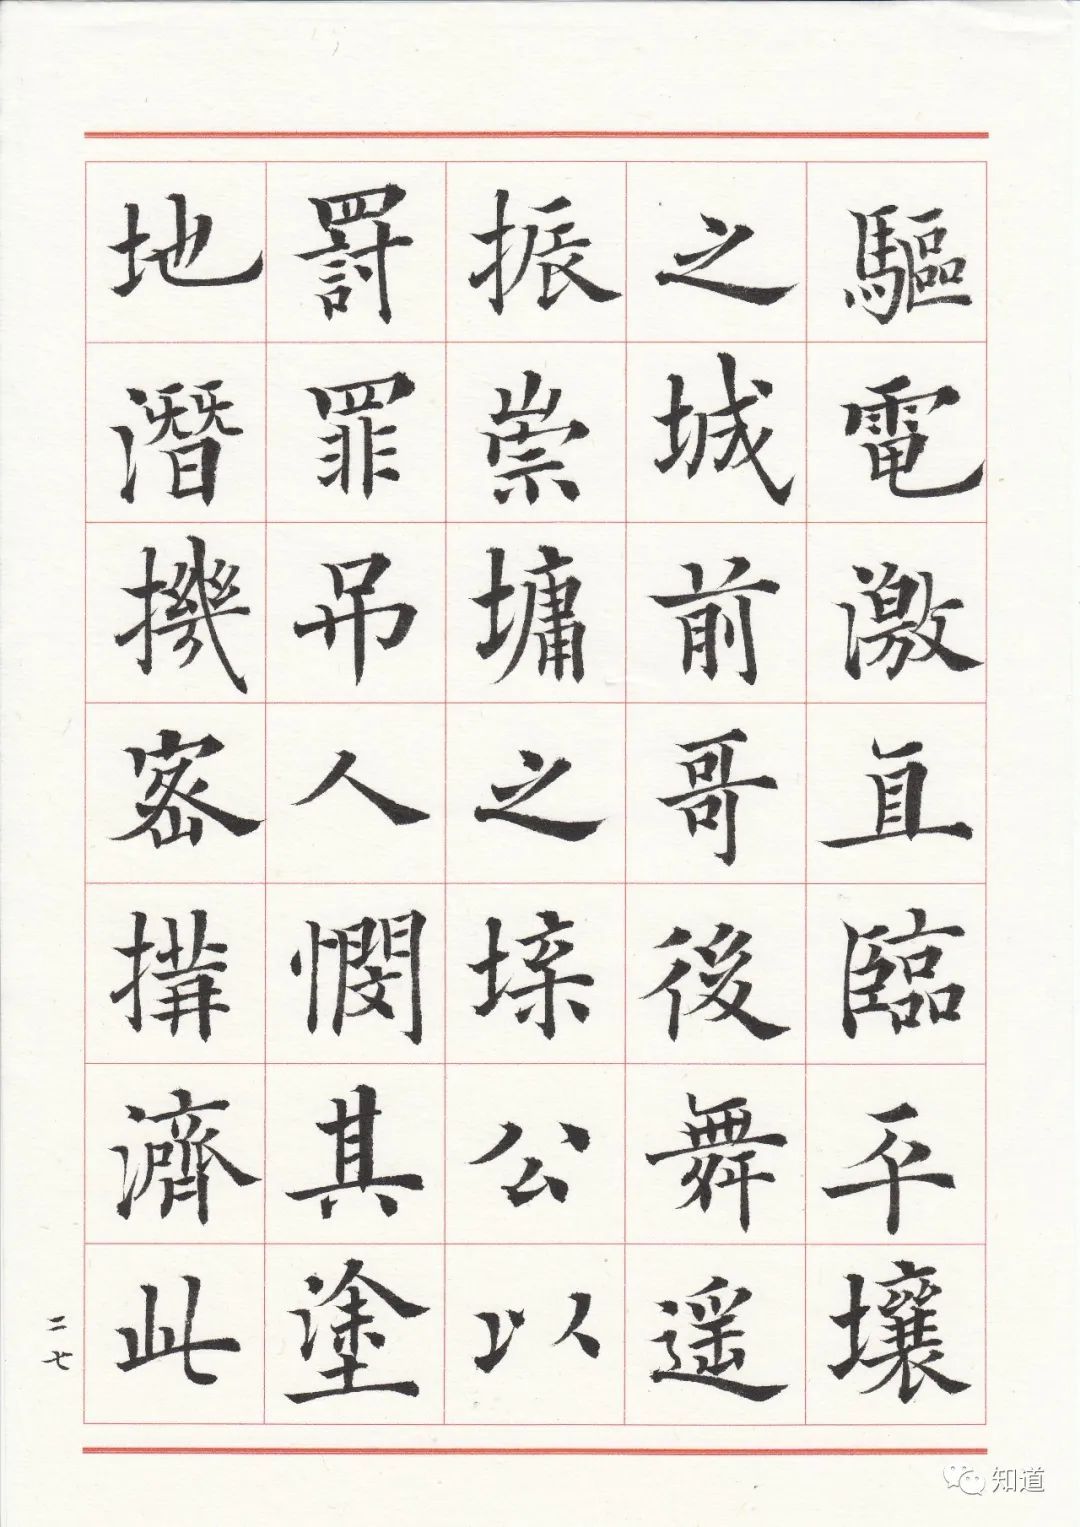 驅電激直臨平壤
之城前哥後舞遥
振崇墉之垛公以
罰罪吊人憫其塗
地潛機密搆濟此
二七
知道